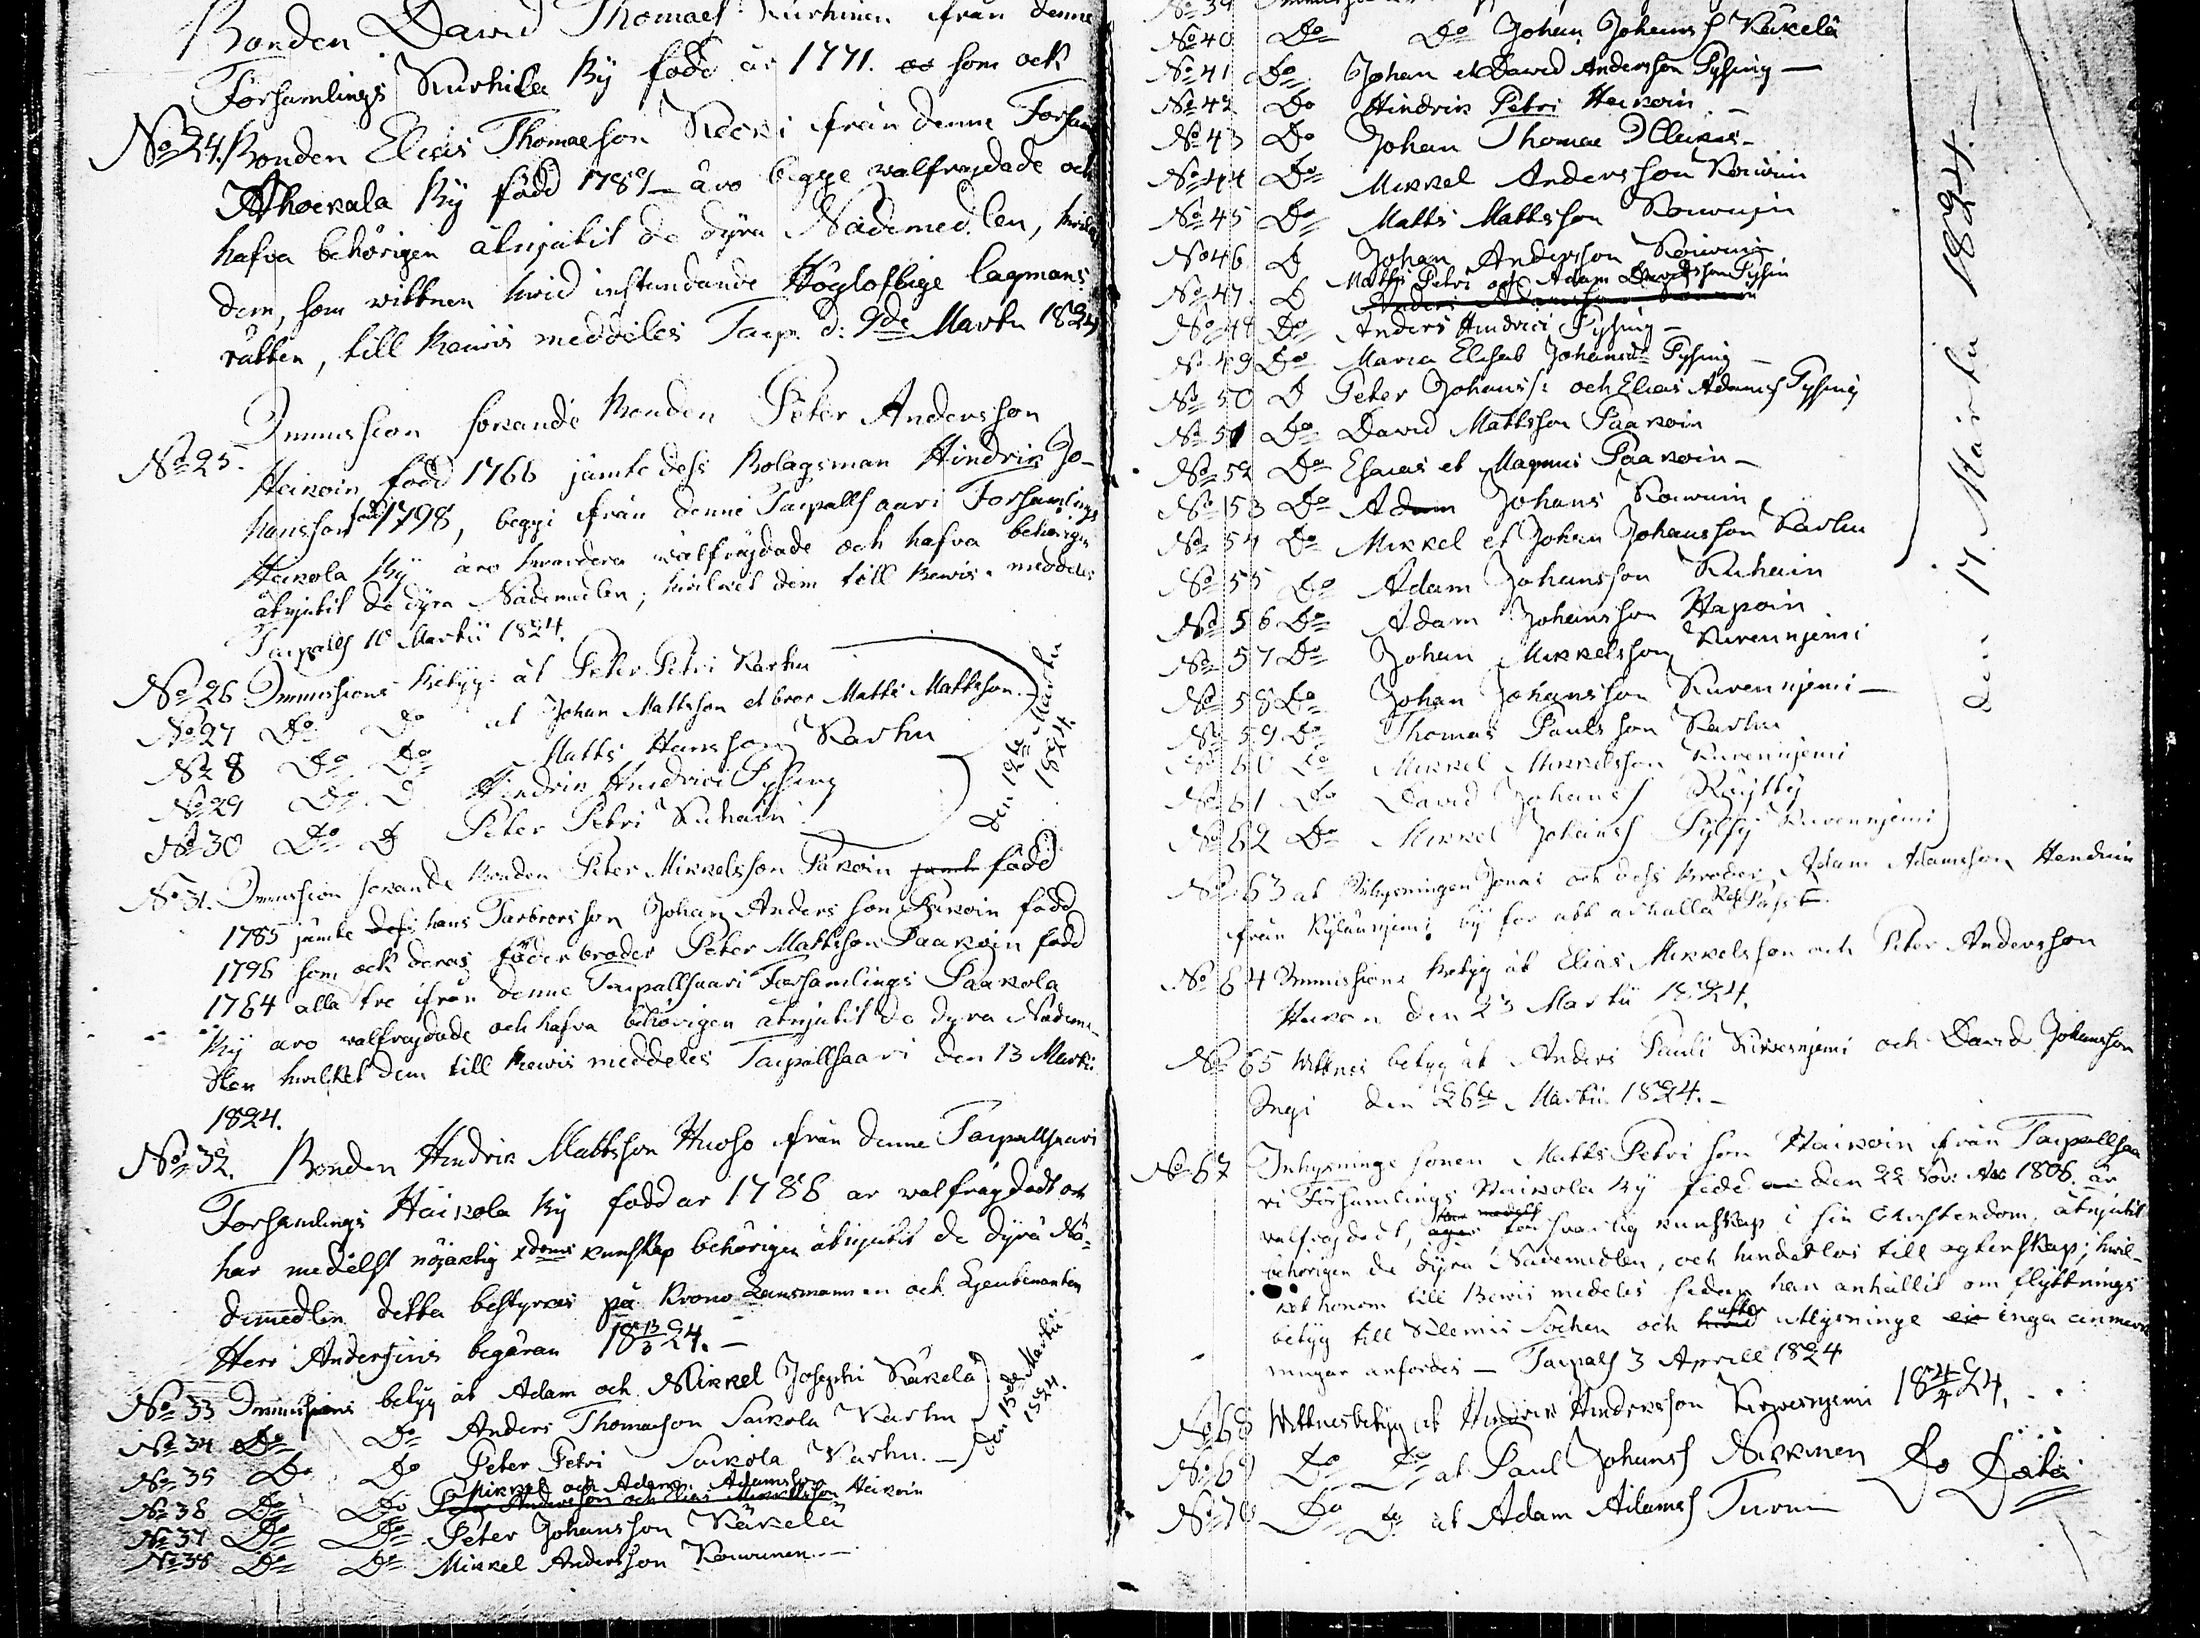 Bonden David Thomaes Kurhinen ifrån denne
Forsamlings Kurhila By född år 1771. som ock
No 24. Bonden Elias Thomaeson från denne Forsam
Ahokala By född 1789 äro begge walfrejdade och
hafva behörigen åtnjutit de dyra Nådemedlen,
dem, som wittnen hwid instundande Högloflige lagmans
rätten, till Bewis meddeles Taip. d: 9de Martii 1824
No 25. Immission sökande Bonden Peter Andersson
Heikoin född 1766 jämte dess Bolagsman Hindrik Jo-
hansson född 1798, begge från denne Taipallsaari Forsamlings
Heikola By äro hwardera walfrejdade och hafva behörigen
åtnjutit de dyra Nådemedlen, hwilket dem till Bewis meddeles
Taipalls 10 Martii 1824.
No 26 Immissions Betyg åt Peter Petri Karhu
No 27 Do Do at Johan Mattsson et bror Matts Mattsson
No 28 Do Do Matts Hansson Karhu
No 29 Do D Hindrik Hindrici Pysing
No 30 Do D Peter Petri Kuhain
den 12te Martii 1824.
No 31. Immission sökande Bonden Peter Mikkelsson Pakoin jämte född
1785 jämte dess hans Farbrorsson Johan Andersson Pakoin född
1796 som ock deras Foderbroder Peter Mattsson Paakoin född
1764 alla tre ifrån denne Taipallsaari Forsamlings Paakola
By äro walfrejdade och hafva behörigen åtnjutit de dyra Nådeme-
dlen hwilket dem till Bewis meddeles Taipallsaari den 13 Martii
1824.
No 32. Bonden Hindrik Mattsson Huoso från denne Taipallsaari
Forsamlings Haikola By född år 1786 är walfrägdadt och
har medelst nöjaktig xdoms kunskap behörigen åtnjutit de dyra Nå-
demedlen detta bestyrkes på Krono Länsmannen och Lieutenanten
Herr Andersins begäran 18 13/3 24.
No 33 Immissions betyg åt Adam och Mikkel Josephi Käkelä
No 34 Do Do Anders Thomaeson Saikola Karhu
No 35 Do Do Peter Petri Saikola Karhu.
den 15de Martii 1824.
No 36 Do Do Mikkel och Adam Adamsson Heikoin
Andersson och Elias Mikkelsson
No 37 Do Do Peter Johansson Käkelä
No 38 Do Do Mikkel Andersson Kouvunen
No 39
No 40 Do Do Johan Johanss Käkelä
No 41 Do Johan et David Andersson Pysing
No 42 Do Hindrik Petri Heikoin
No 43 Do Johan Thomae
No 44 Do Mikkel Andersson Kouwuin
No 45 Do Matts Mattsson Kouwuin
No 46 D Johan Andersson Kouwuin
No 47. D Matts Petri och Adam Davidsson Pysin
No 48 Do Anders Hindrici Pysing
No 49 Do Maria Elisab Johansdr Pysing
No 50 D Peter Johanss: och Elias Adamss Pysing
No 51 Do David Mattsson Paakoin
No 52 Do Esaias et Magnus Paakoin
No 53 Do Adam Johans Kouwuin
No 54 Do Mikkel et Johan Johansson Karhu
No 55 Do Adam Johansson Kuhain
No 56 Do Adam Johansson Hapoin
No 57 Do Johan Mikkelsson Kurennjemi
No 58 Do Johan Johansson Kurennjemi
No 59 Do Thomas Paulsson Karhu
No 60 Do Mikkel Mikkelsson Kurennjemi
No 61 Do David Johanss
No 62 Do Mikkel Johanss Kurennjemi
den 17. Martii 1824.
No 63 at Inhysningen Jonas och dess Broder Adam Adamsson
från Kyläänjemi by for att erhålla Res Pass
No 64 Immissions Betyg åt Elias Mikkelsson och Peter Andersson
den 23 Martii 1824.
No 65 Wittnes betyg åt Anders Pauli Kirvesnjemi och David Johansson
Ingi den 26te Martii 1824.
No 67 Inhysninge sonen Matts Petri son Haikoin från Taipallsaa
ri Forsamlings Haikola By född den 22 Nov: 1806. är
walfrejdadt, har medelst forswarlig kunskap i sin Christendom, åtnjutit
behörigen de dyra Nådemedlen, och hinderlös till egtenskap; hwil-
ket honom till Bewis medeles sedan han anhållit om flyttnings
betyg till Klemis Sochen och efter utlysninge inga anmerk
ningar anfordes — Taipals 3 Aprill 1824
No 68 Wittnesbetyg åt Hindrik Hindersson Kirwesnjemi 18 4/4 24.
No 69 Do Do at Paul Johanss Nikkinen Do Dato
No 70 Do Do at Adam Adamss